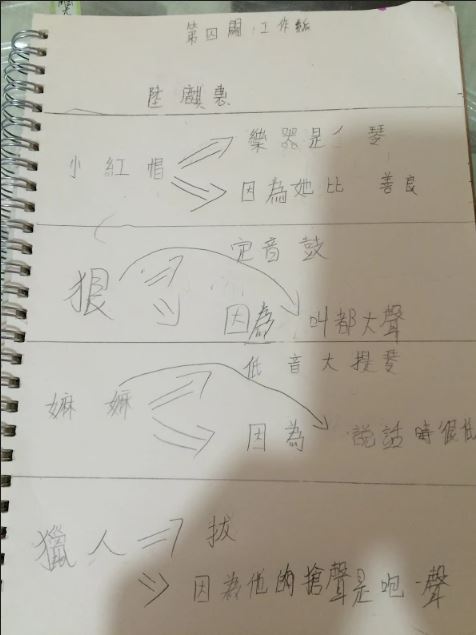 第四關:工作紙
陸麒惠
小紅帽
樂器是 琴
因為她比 善良
狠
定音鼓
因為 叫都大聲
嫲 嫲
低音大提琴
因為 說話時很低
獵人
拔
因為他的搶聲是咆一聲